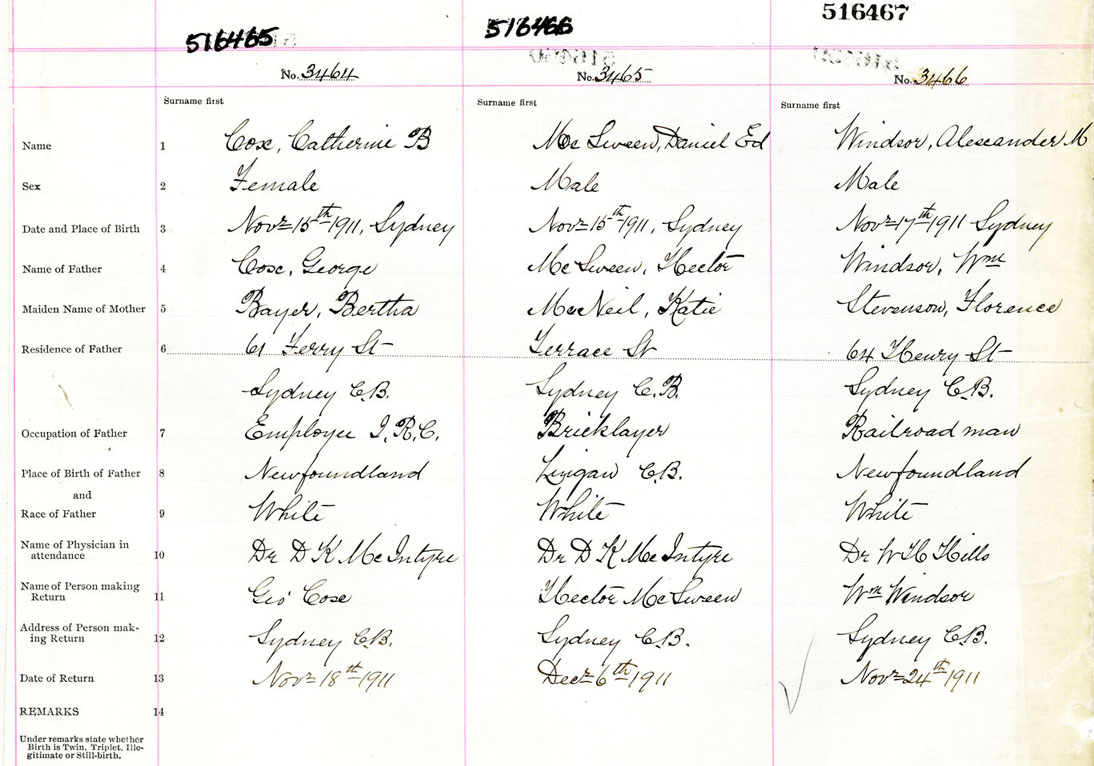 516465 516466 516467
No. 3464 No. 3465 No. 3466
Surname first Surname first Surname first
Name 1 Cox, Catherine B Mc Sween, Daniel Ed Windsor, Alexander M
Sex 2 Female Male Male
Date and Place of Birth 3 Novr 15th 1911, Sydney Novr 15th 1911, Sydney Novr 17th 1911 Sydney
Name of Father 4 Cox, George Mc Sween, Hector Windsor, Wm
Maiden Name of Mother 5 Bayer, Bertha MacNeil, Katie Stevenson, Florence
Residence of Father 6 61 Ferry St Terrace St 64 Henry St
Sydney C.B. Sydney C.B. Sydney C.B.
Occupation of Father 7 Employee I.R.C. Bricklayer Railroad man
Place of Birth of Father 8 Newfoundland Lingan C.B. Newfoundland
and
Race of Father 9 White White White
Name of Physician in
attendance 10 Dr D K McIntyre Dr D K McIntyre Dr W H Hills
Name of Person making
Return 11 Geo Cox Hector McSween Wm Windsor
Address of Person mak-
ing Return 12 Sydney C.B. Sydney C.B. Sydney C.B.
Date of Return 13 Novr 18th 1911 Decr 6th 1911 Novr 24th 1911
REMARKS 14
Under remarks state whether
Birth is Twin, Triplet, Ille-
gitimate or Still-birth.